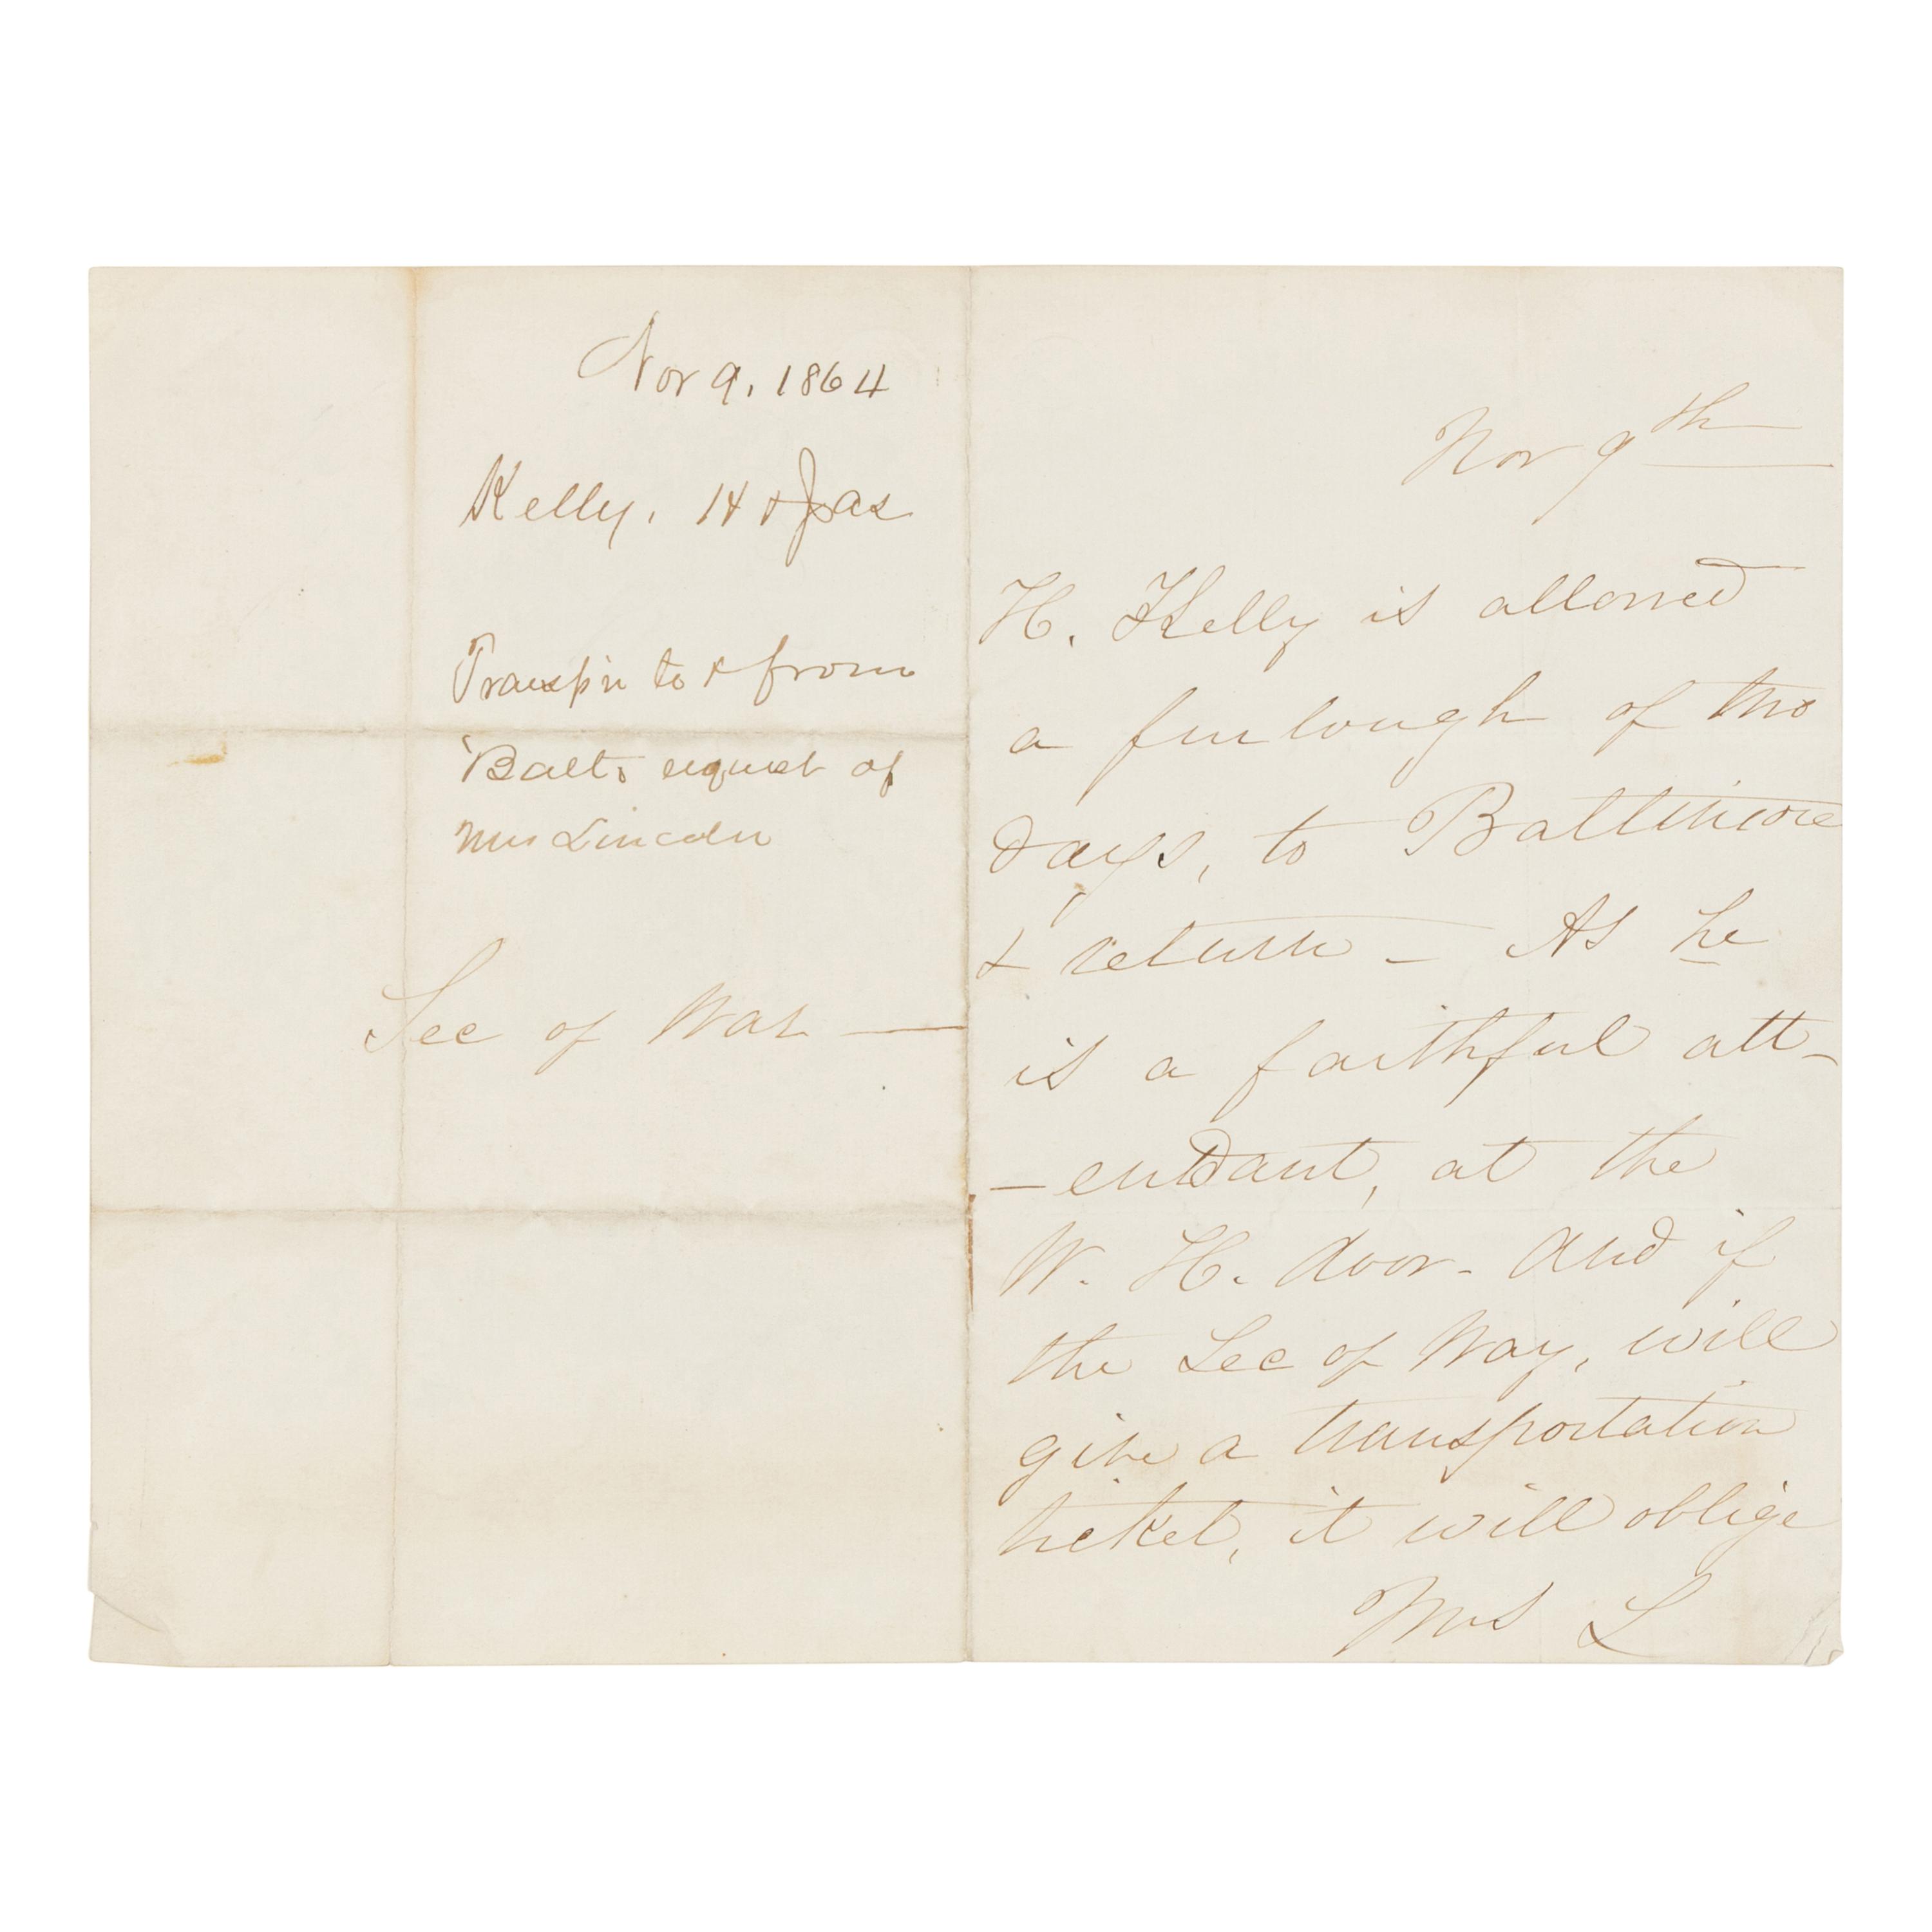 Nov 9, 1864
Kelly, H & Jas
Transp'n to & from
Balt. request of
Mrs Lincoln
Sec of War —
Nov 9th
H. Kelly is allowed
a furlough of two
days, to Baltimore
& return - As he
is a faithful att-
-endant, at the
W. H. door - And if
the Sec of War, will
give a transportation
ticket, it will oblige
Mrs L